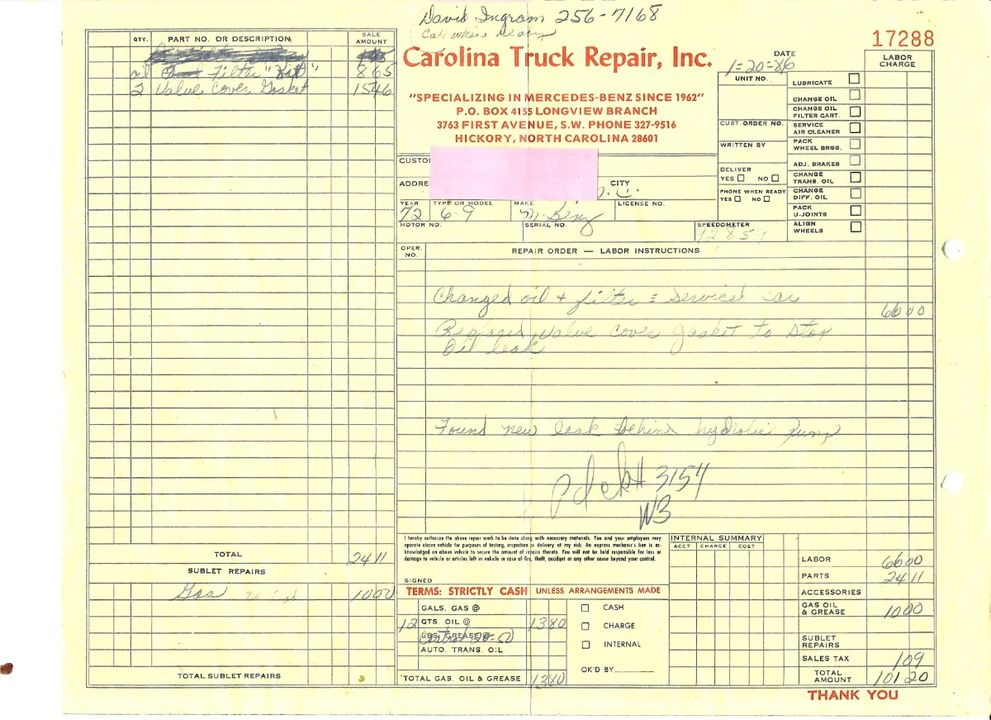 David Ingram 256-7168
Call when Ready
17288
QTY. PART NO. OR DESCRIPTION SALE AMOUNT
oil Filter "Kit" 8 65
2 Valve Cover Gasket 15 46
Carolina Truck Repair, Inc.
"SPECIALIZING IN MERCEDES-BENZ SINCE 1962"
P.O. BOX 4155 LONGVIEW BRANCH
3763 FIRST AVENUE, S.W. PHONE 327-9516
HICKORY, NORTH CAROLINA 28601
DATE
1-20-86
UNIT NO.
CUST ORDER NO.
WRITTEN BY
DELIVER
YES NO
PHONE WHEN READY
YES NO
LABOR CHARGE
LUBRICATE
CHANGE OIL
CHANGE OIL FILTER CART.
SERVICE AIR CLEANER
PACK WHEEL BRGS.
ADJ. BRAKES
CHANGE TRANS. OIL
CHANGE DIFF. OIL
PACK U-JOINTS
ALIGN WHEELS
CUSTO
ADDRE CITY
YEAR TYPE OR MODEL MAKE LICENSE NO.
72 6-9 M. Benz
MOTOR NO. SERIAL NO. SPEEDOMETER
OPER. NO. REPAIR ORDER — LABOR INSTRUCTIONS
Changed oil + filter = Serviced car
66 00
Replaced valve cover gasket to stop
oil leak
Found new leak behind hydrolic pump
Pd ck# 3154
WB
TOTAL 24 11
SUBLET REPAIRS
Gas 10 00
TOTAL SUBLET REPAIRS
I hereby authorize the above repair work to be done along with necessary materials. You and your employees may
operate above vehicle for purposes of testing, inspection or delivery at my risk. An express mechanic's lien is ac-
knowledged on above vehicle to secure the amount of repairs thereto. You will not be held responsible for loss or
damage to vehicle or articles left in vehicle in case of fire, theft, accident or any other cause beyond your control.
SIGNED
TERMS: STRICTLY CASH UNLESS ARRANGEMENTS MADE
GALS. GAS @
12 QTS. OIL @ 13 80
LBS. GREASE @
AUTO. TRANS. OIL
TOTAL GAS. OIL & GREASE 13 80
CASH
CHARGE
INTERNAL
OK'D BY
INTERNAL SUMMARY
ACCT CHARGE COST
LABOR 66 00
PARTS 24 11
ACCESSORIES
GAS OIL & GREASE 10 00
SUBLET REPAIRS
SALES TAX 1 09
TOTAL AMOUNT 101 20
THANK YOU